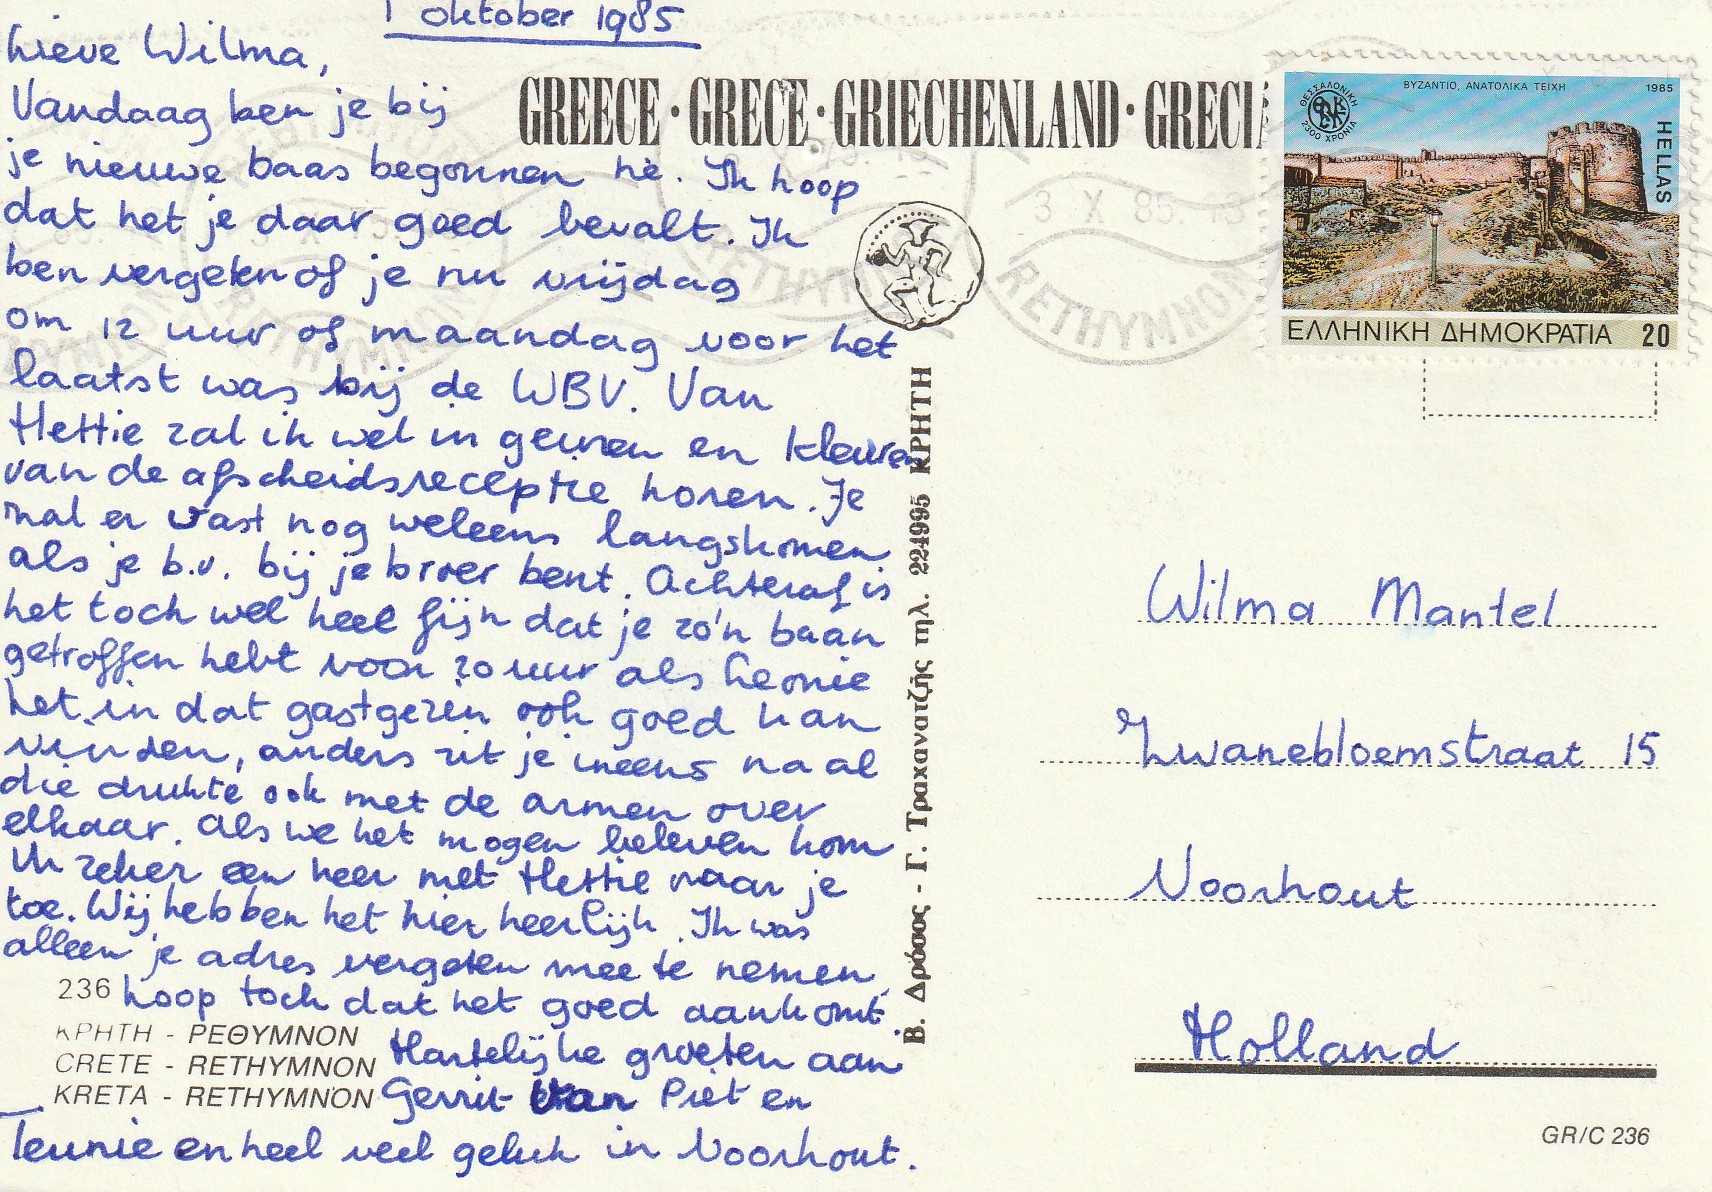 1 oktober 1985
Lieve Wilma,
Vandaag ben je bij
je nieuwe baas begonnen hè. Ik hoop
dat het je daar goed bevalt. Ik
ben vergeten of je nu vrijdag
om 12 uur of maandag voor het
laatst was bij de WBV. Van
Hettie zal ik wel in geuren en kleuren
van de afscheidsreceptie horen. Je
mal er vast nog weleens langskomen
als je b.v. bij je broer bent. Achteraf is
het toch wel heel fijn dat je zo'n baan
getroffen hebt voor 20 uur als Leonie
het in dat gastgezin ook goed kan
vinden, anders zit je ineens na al
die drukte ook met de armen over
elkaar. Als we het mogen beleven kom
ik zeker een keer met Hettie naar je
toe. Wij hebben het hier heerlijk. Ik was
alleen je adres vergeten mee te nemen.
Hoop toch dat het goed aankomt.
Hartelijke groeten aan
Gerrit van Piet en
Teunie en heel veel geluk in Noorhout.
236
ΚΡΗΤΗ - ΡΕΘΥΜΝΟΝ
CRETE - RETHYMNON
KRETA - RETHYMNON
GREECE · GRECE · GRIECHENLAND · GRECIA
Β. Δρόσος - Γ. Τραχανατζής τηλ. 224995 ΚΡΗΤΗ
3 X 85. 13
RETHYMNON
RETHYMNON
RETHYMNON
ΘΕΣΣΑΛΟΝΙΚΗ
2300 ΧΡΟΝΙΑ
ΒΥΖΑΝΤΙΟ, ΑΝΑΤΟΛΙΚΑ ΤΕΙΧΗ
1985
HELLAS
ΕΛΛΗΝΙΚΗ ΔΗΜΟΚΡΑΤΙΑ 20
Wilma Mantel
Zwanebloemstraat 15
Noorhout
Holland
GR/C 236